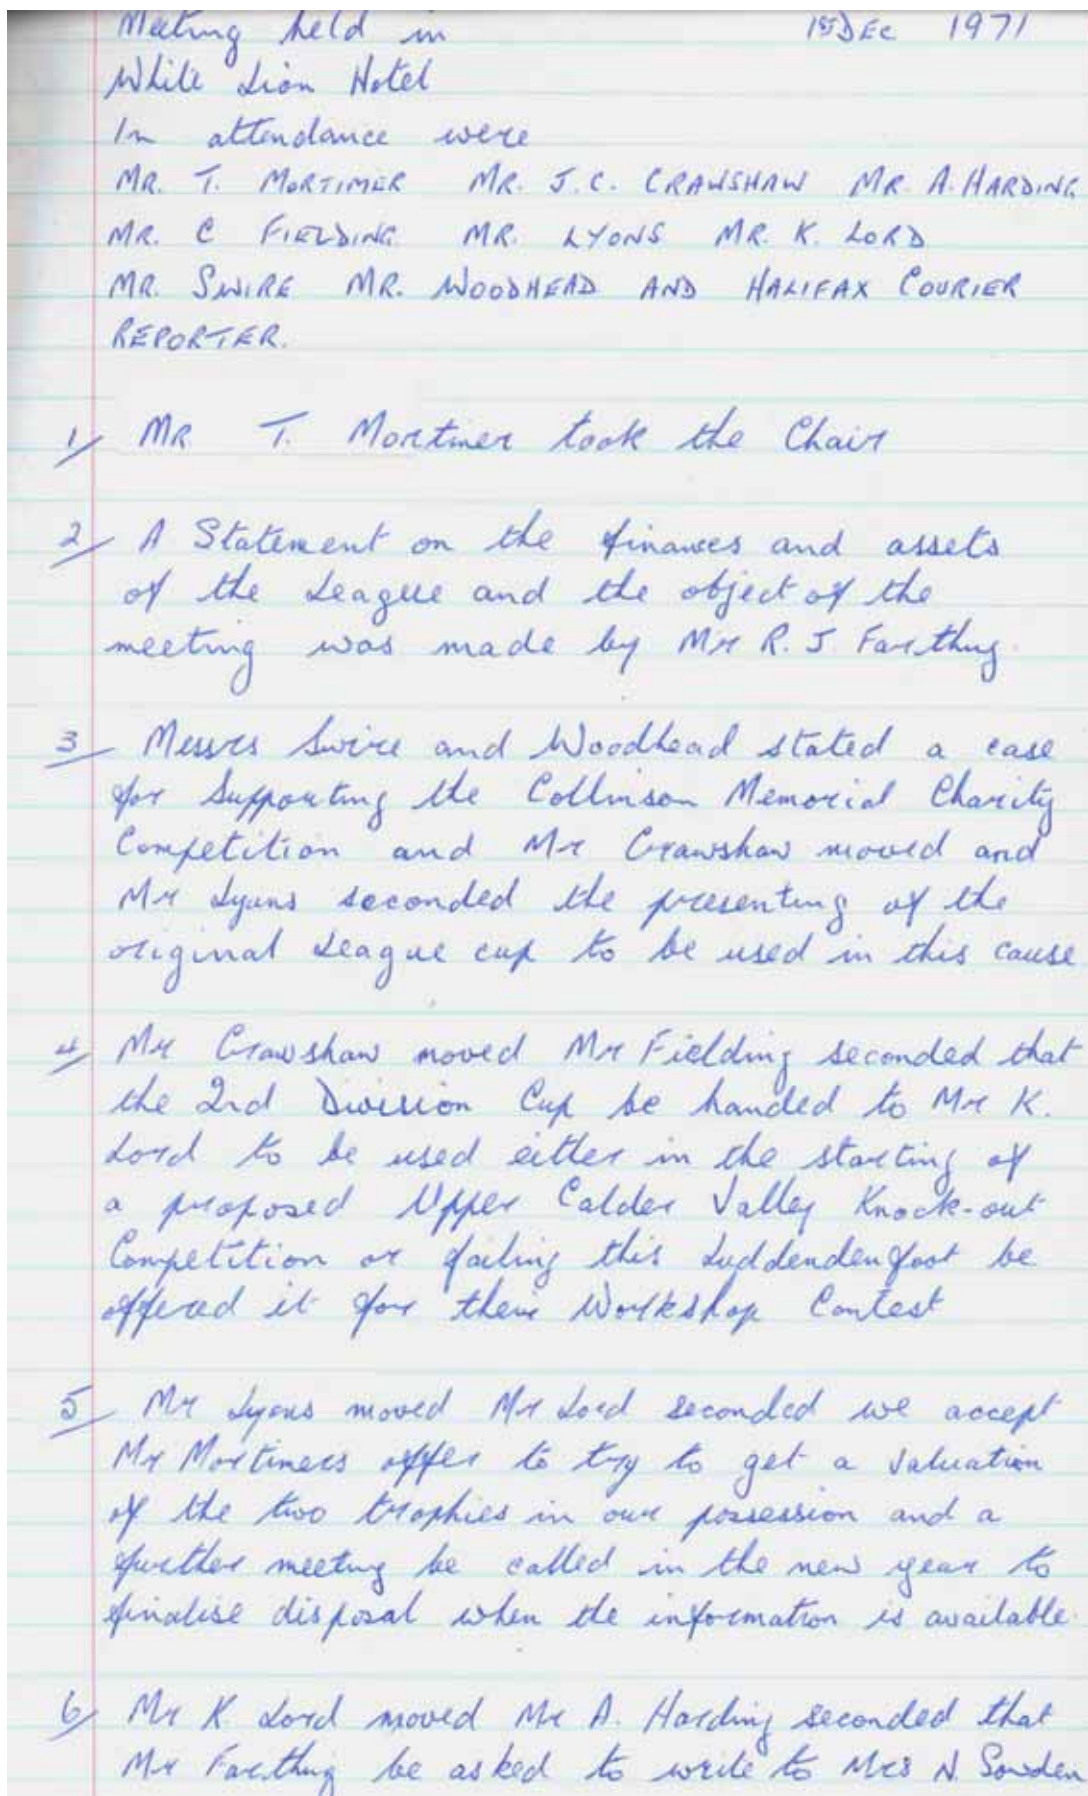 Meeting held in 1st DEC 1971
White Lion Hotel
In attendance were
MR. T. MORTIMER MR. J.C. CRAWSHAW MR. A. HARDING
MR. C FIELDING MR. LYONS MR. K. LORD
MR. SWIRE MR. WOODHEAD AND HALIFAX COURIER
REPORTER.
1/ MR T. Mortimer took the Chair
2/ A Statement on the finances and assets
of the League and the object of the
meeting was made by Mr R. J. Farthing.
3/ Messrs Swire and Woodhead stated a case
for Supporting the Collinson Memorial Charity
Competition and Mr Crawshaw moved and
Mr Lyons seconded the presenting of the
original League cup to be used in this cause
4/ Mr Crawshaw moved Mr Fielding seconded that
the 2nd Division Cup be handed to Mr K.
Lord to be used either in the starting of
a proposed Upper Calder Valley Knock-out
Competition or failing this Luddendenfoot be
offered it for their Workshop Contest
5/ Mr Lyons moved Mr Lord seconded we accept
Mr Mortimers offer to try to get a valuation
of the two trophies in our possession and a
further meeting be called in the new year to
finalise disposal when the information is available.
6/ Mr K. Lord moved Mr A. Harding seconded that
Mr Farthing be asked to write to Mrs N. Sowden